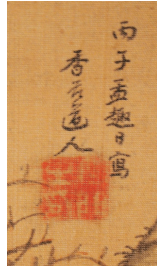 丙子孟趣日寫
香吾道人